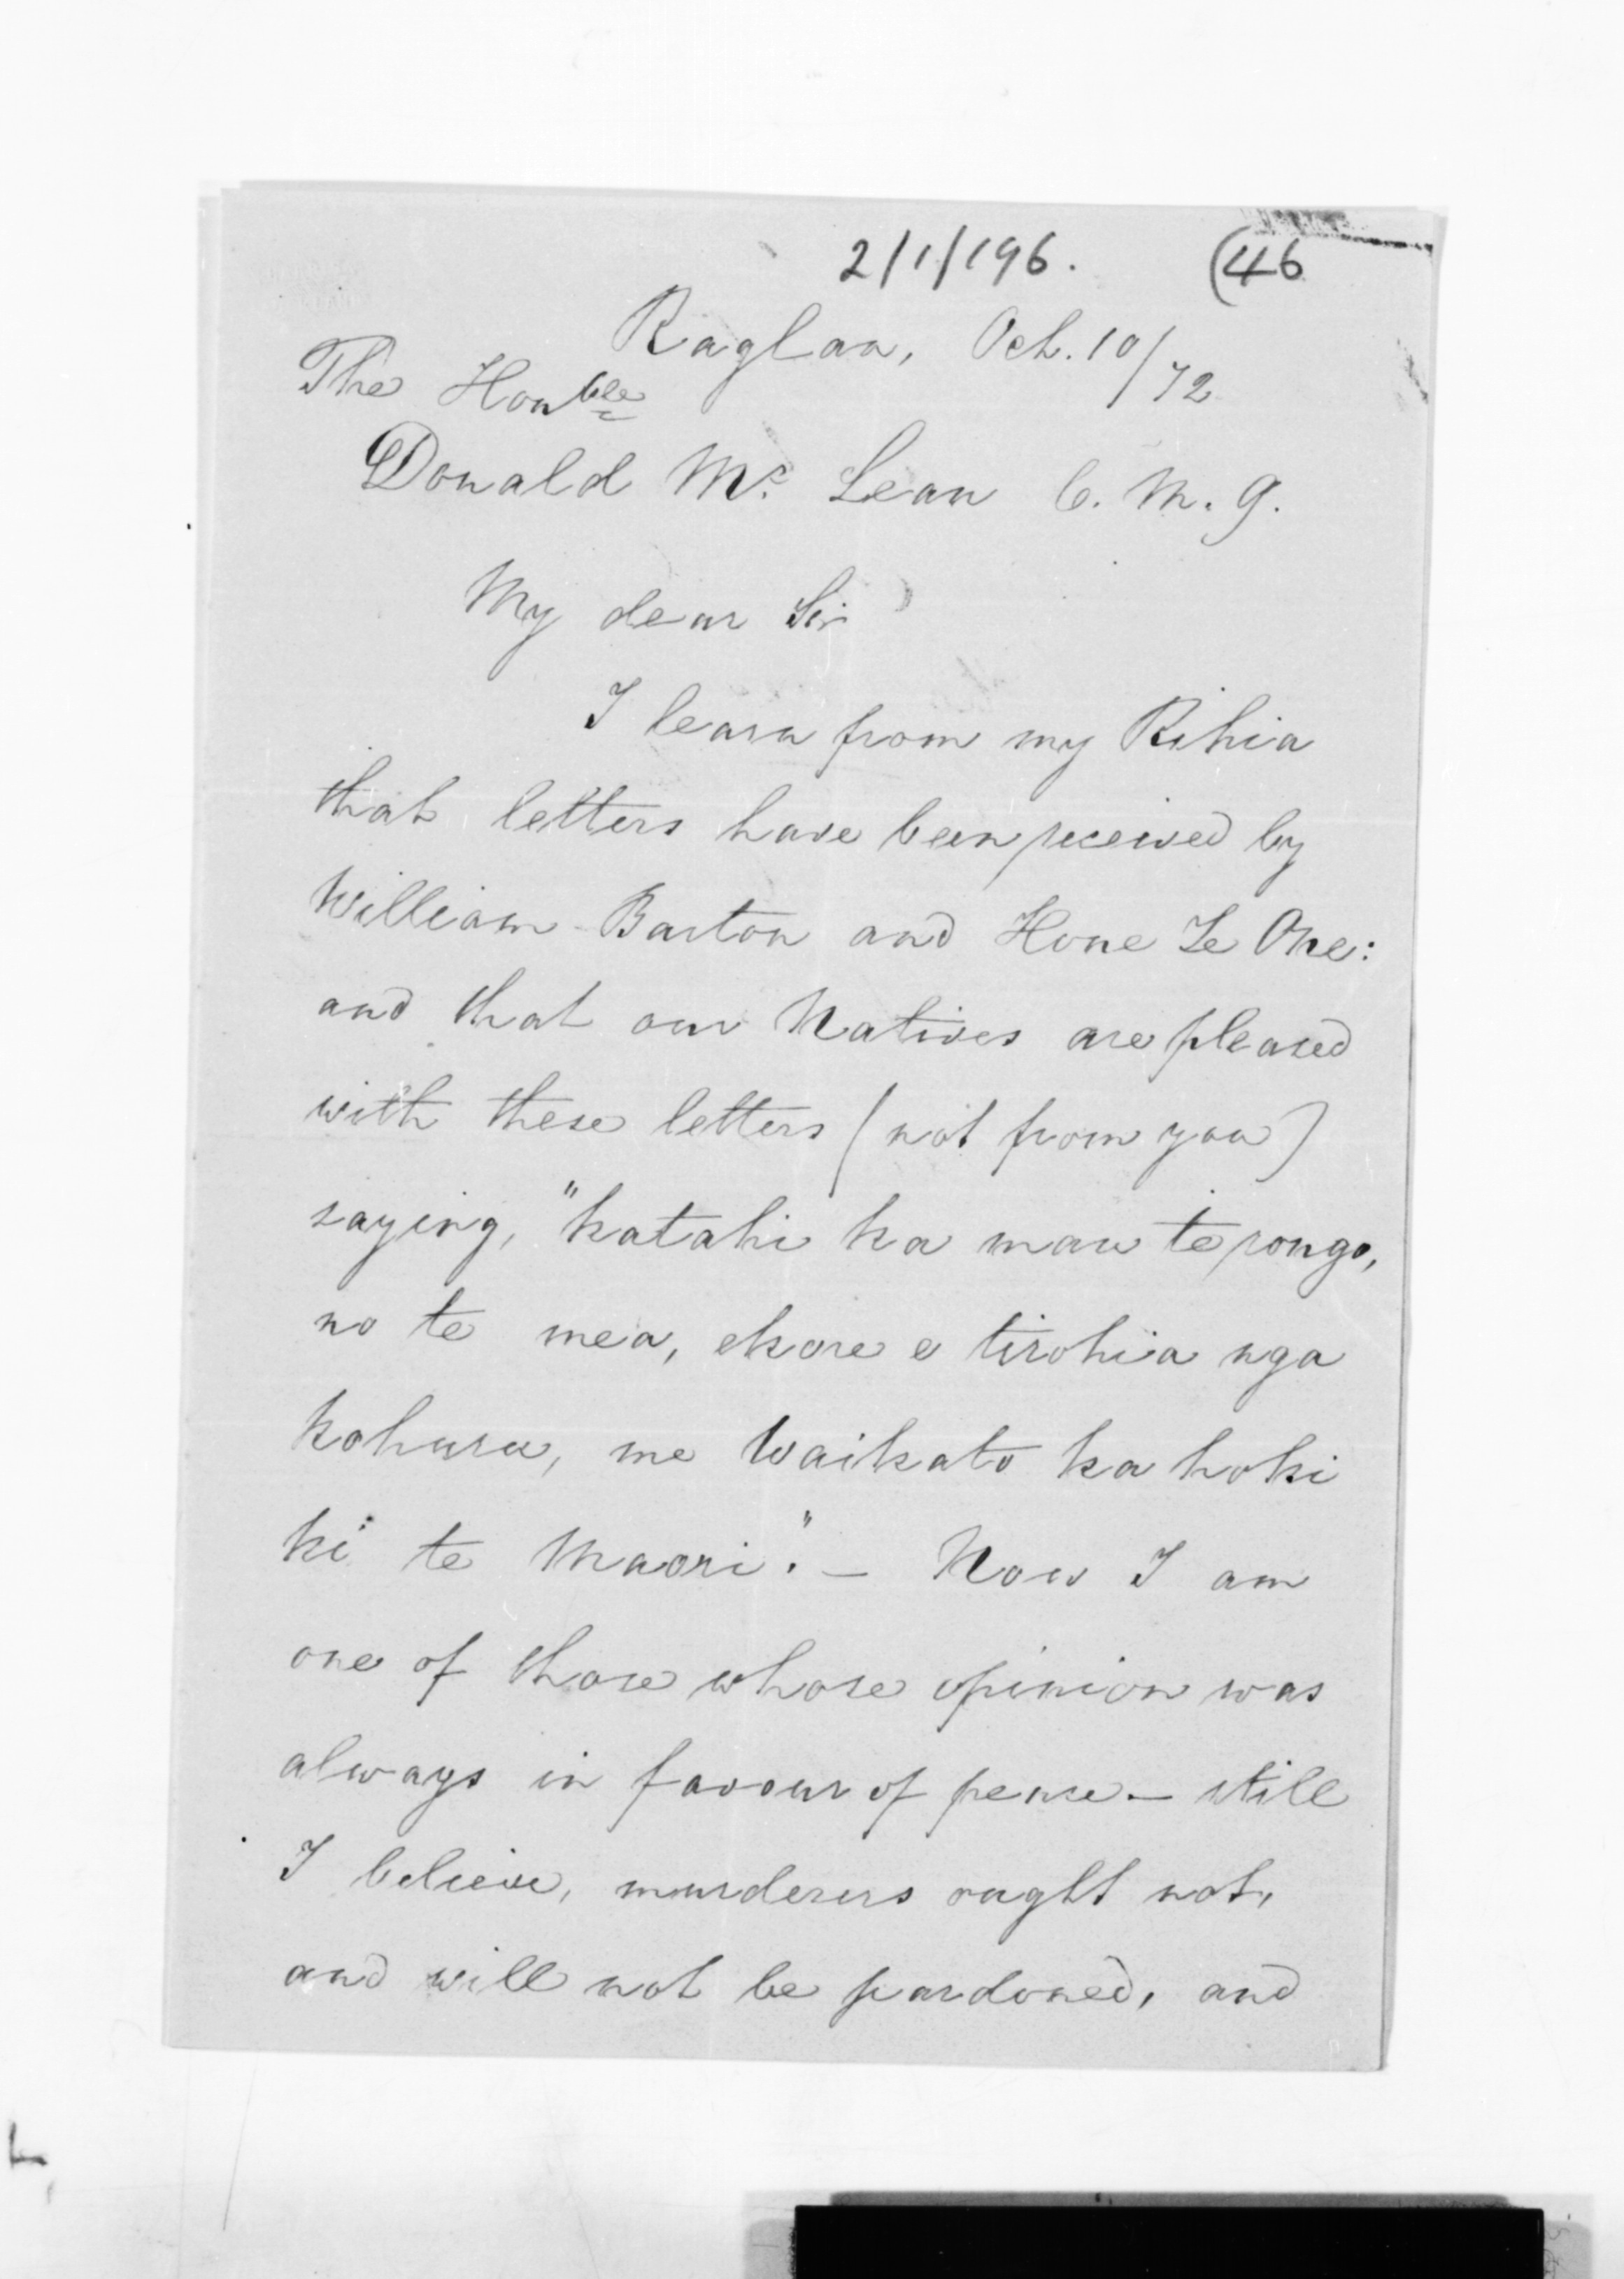 2/1/196. (46
Raglan, Oct. 10/72
The Honble
Donald Mc. Lean C. M. G.
My dear Sir
I learn from my Rihia
that letters have been received by
William Barton and Hone Te One:
and that our Natives are pleased
with these letters (not from you)
saying, "katahi ka mau te rongo,
no te mea, ekore e tirohia nga
kohuru, me Waikato ka hoki
ki te Maori." — Now I am
one of those whose opinion was
always in favour of peace — still
I believe, murderers ought not,
and will not be pardoned, and